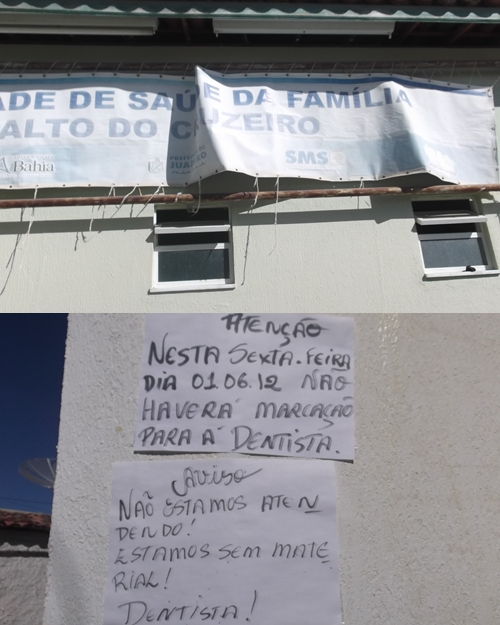 ADE DE SAÚDE DA FAMÍLIA
ALTO DO CRUZEIRO
Bahia
JUA
SMS
ATENÇÃO
NESTA SEXTA-FEIRA
DIA 01.06.12 NÃO
HAVERÁ MARCAÇÃO
PARA A DENTISTA.
Aviso
NÃO ESTAMOS ATEN
DENDO!
ESTAMOS SEM MATE
RIAL!
DENTISTA!